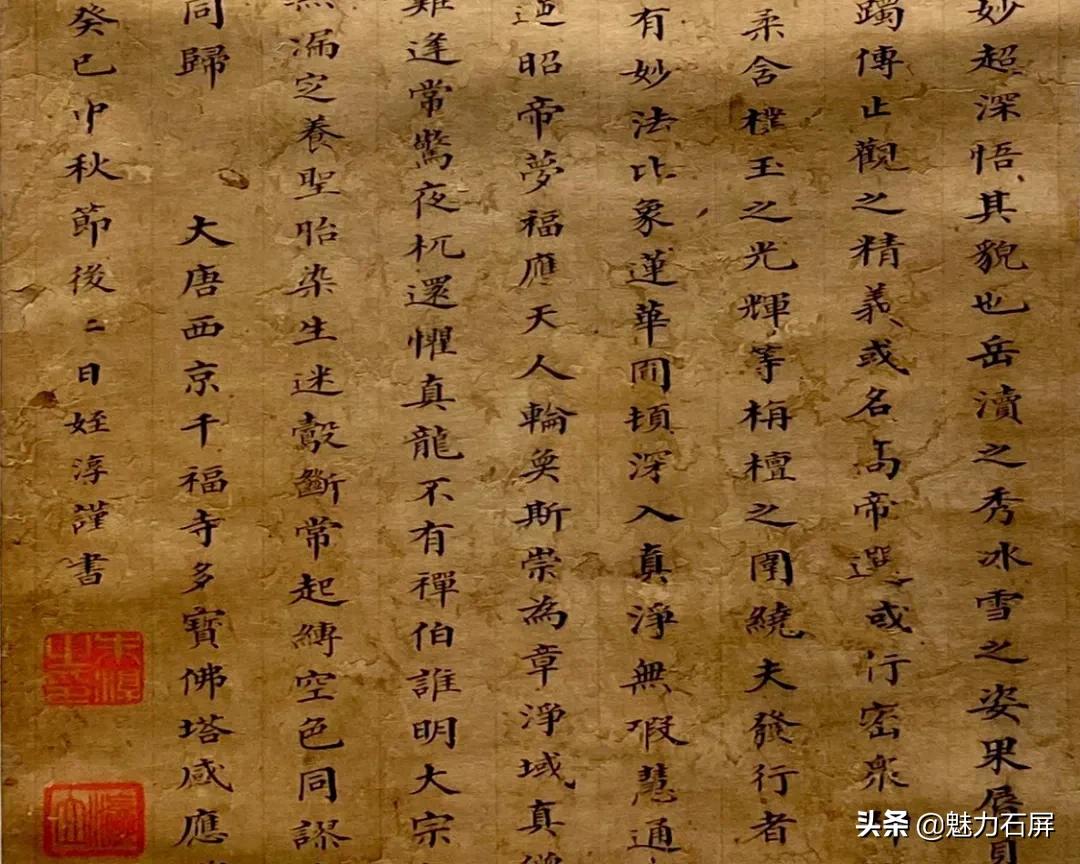 妙超深悟其貌也岳瀆之秀冰雪之姿果脣貝
躅傳止觀之精義或名高帝選或行密衆
柔舍樸玉之光輝等栴檀之圍繞夫發行者
有妙法比象蓮華圓頓深入真淨無瑕慧通
迹昭帝夢福應天人輪奐斯崇為章淨域真
難逢常驚夜杌還懼真龍不有禪伯誰明大宗
無漏定養聖胎染生迷轂斷常起縛空色同謬
同歸 大唐西京千福寺多寶佛塔感應
癸巳中秋節後二日姪淳謹書
头条 @魅力石屏